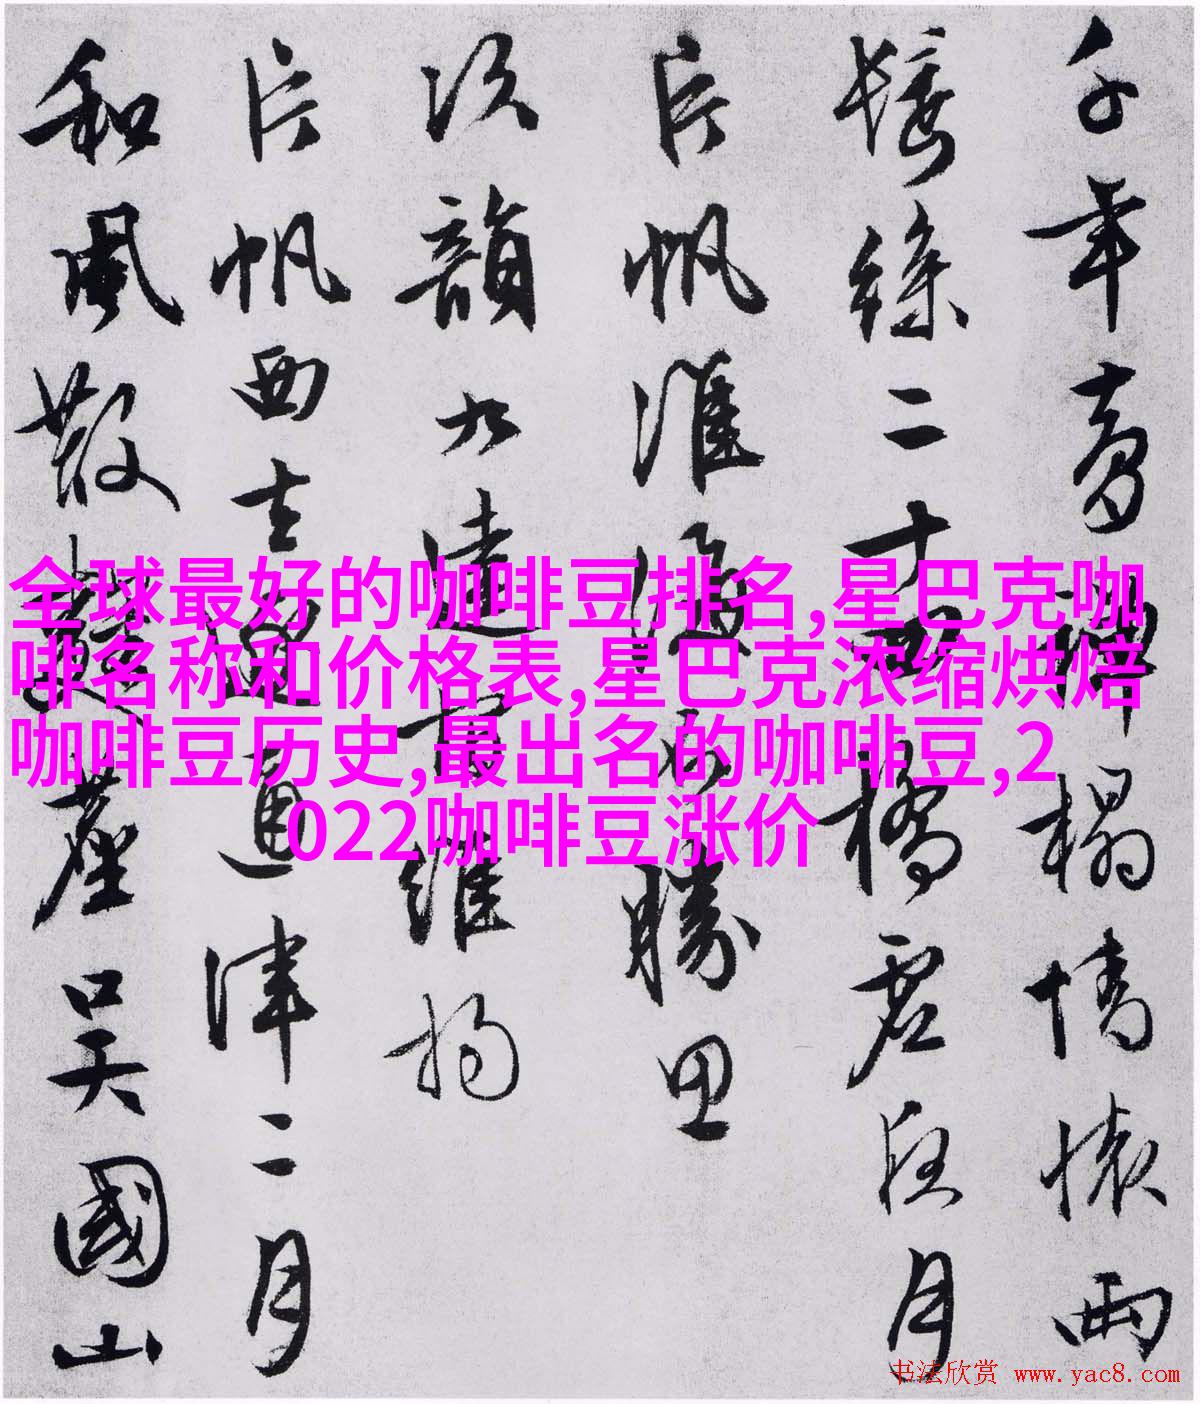 千年禪榻情懷兩
絲二十四橋月
片帆淮勝思
次韻九維揚
片帆西去通津二月
和風散塵吳國山
全球最好的咖啡豆排名,星巴克咖
啡名称和价格表,星巴克浓缩烘焙
咖啡豆历史,最出名的咖啡豆,2
022咖啡豆涨价
书法欣赏 www.yac8.com